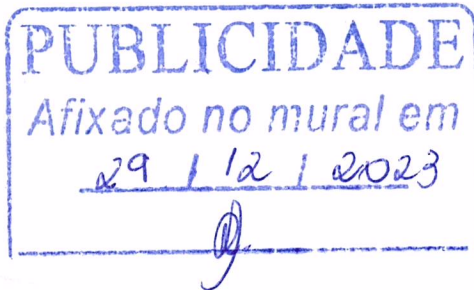 PUBLICIDADE
Afixado no mural em
29 / 12 / 2023